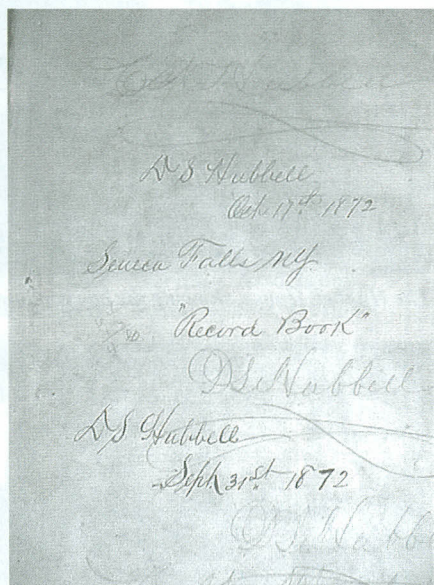 D S Hubbell
Oct 17th 1872
Seneca Falls NY.
"Record Book"
D S Hubbell
D S Hubbell
Sept 31st 1872
D S Hubb